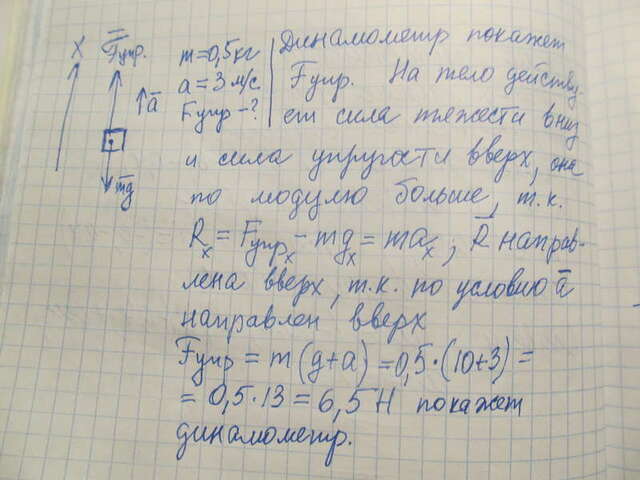 X F̅упр. m=0,5кг Динамометр покажет
a̅ a=3 м/с Fупр. На тело действу-
Fупр-? ет сила тяжести вниз
и сила упругости вверх, она
mg̅ по модулю больше, т.к.
Rₓ = Fупрₓ - mgₓ = maₓ, R̅ направ-
лена вверх, т.к. по условию a̅
направлен вверх
Fупр = m(g+a) = 0,5·(10+3) =
= 0,5·13 = 6,5Н покажет
динамометр.